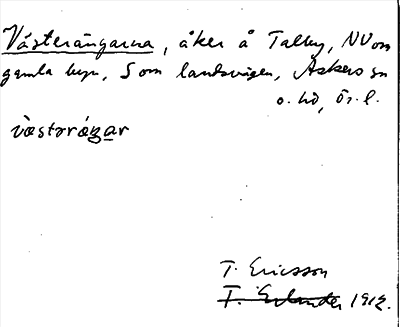 Västerängarna, åker å Talby, NV om
gamla byn, S om landsvägen, Askers sn
o. hd, Ör. l.
västəräŋar
T. Ericsson
T. Erlander 1912.